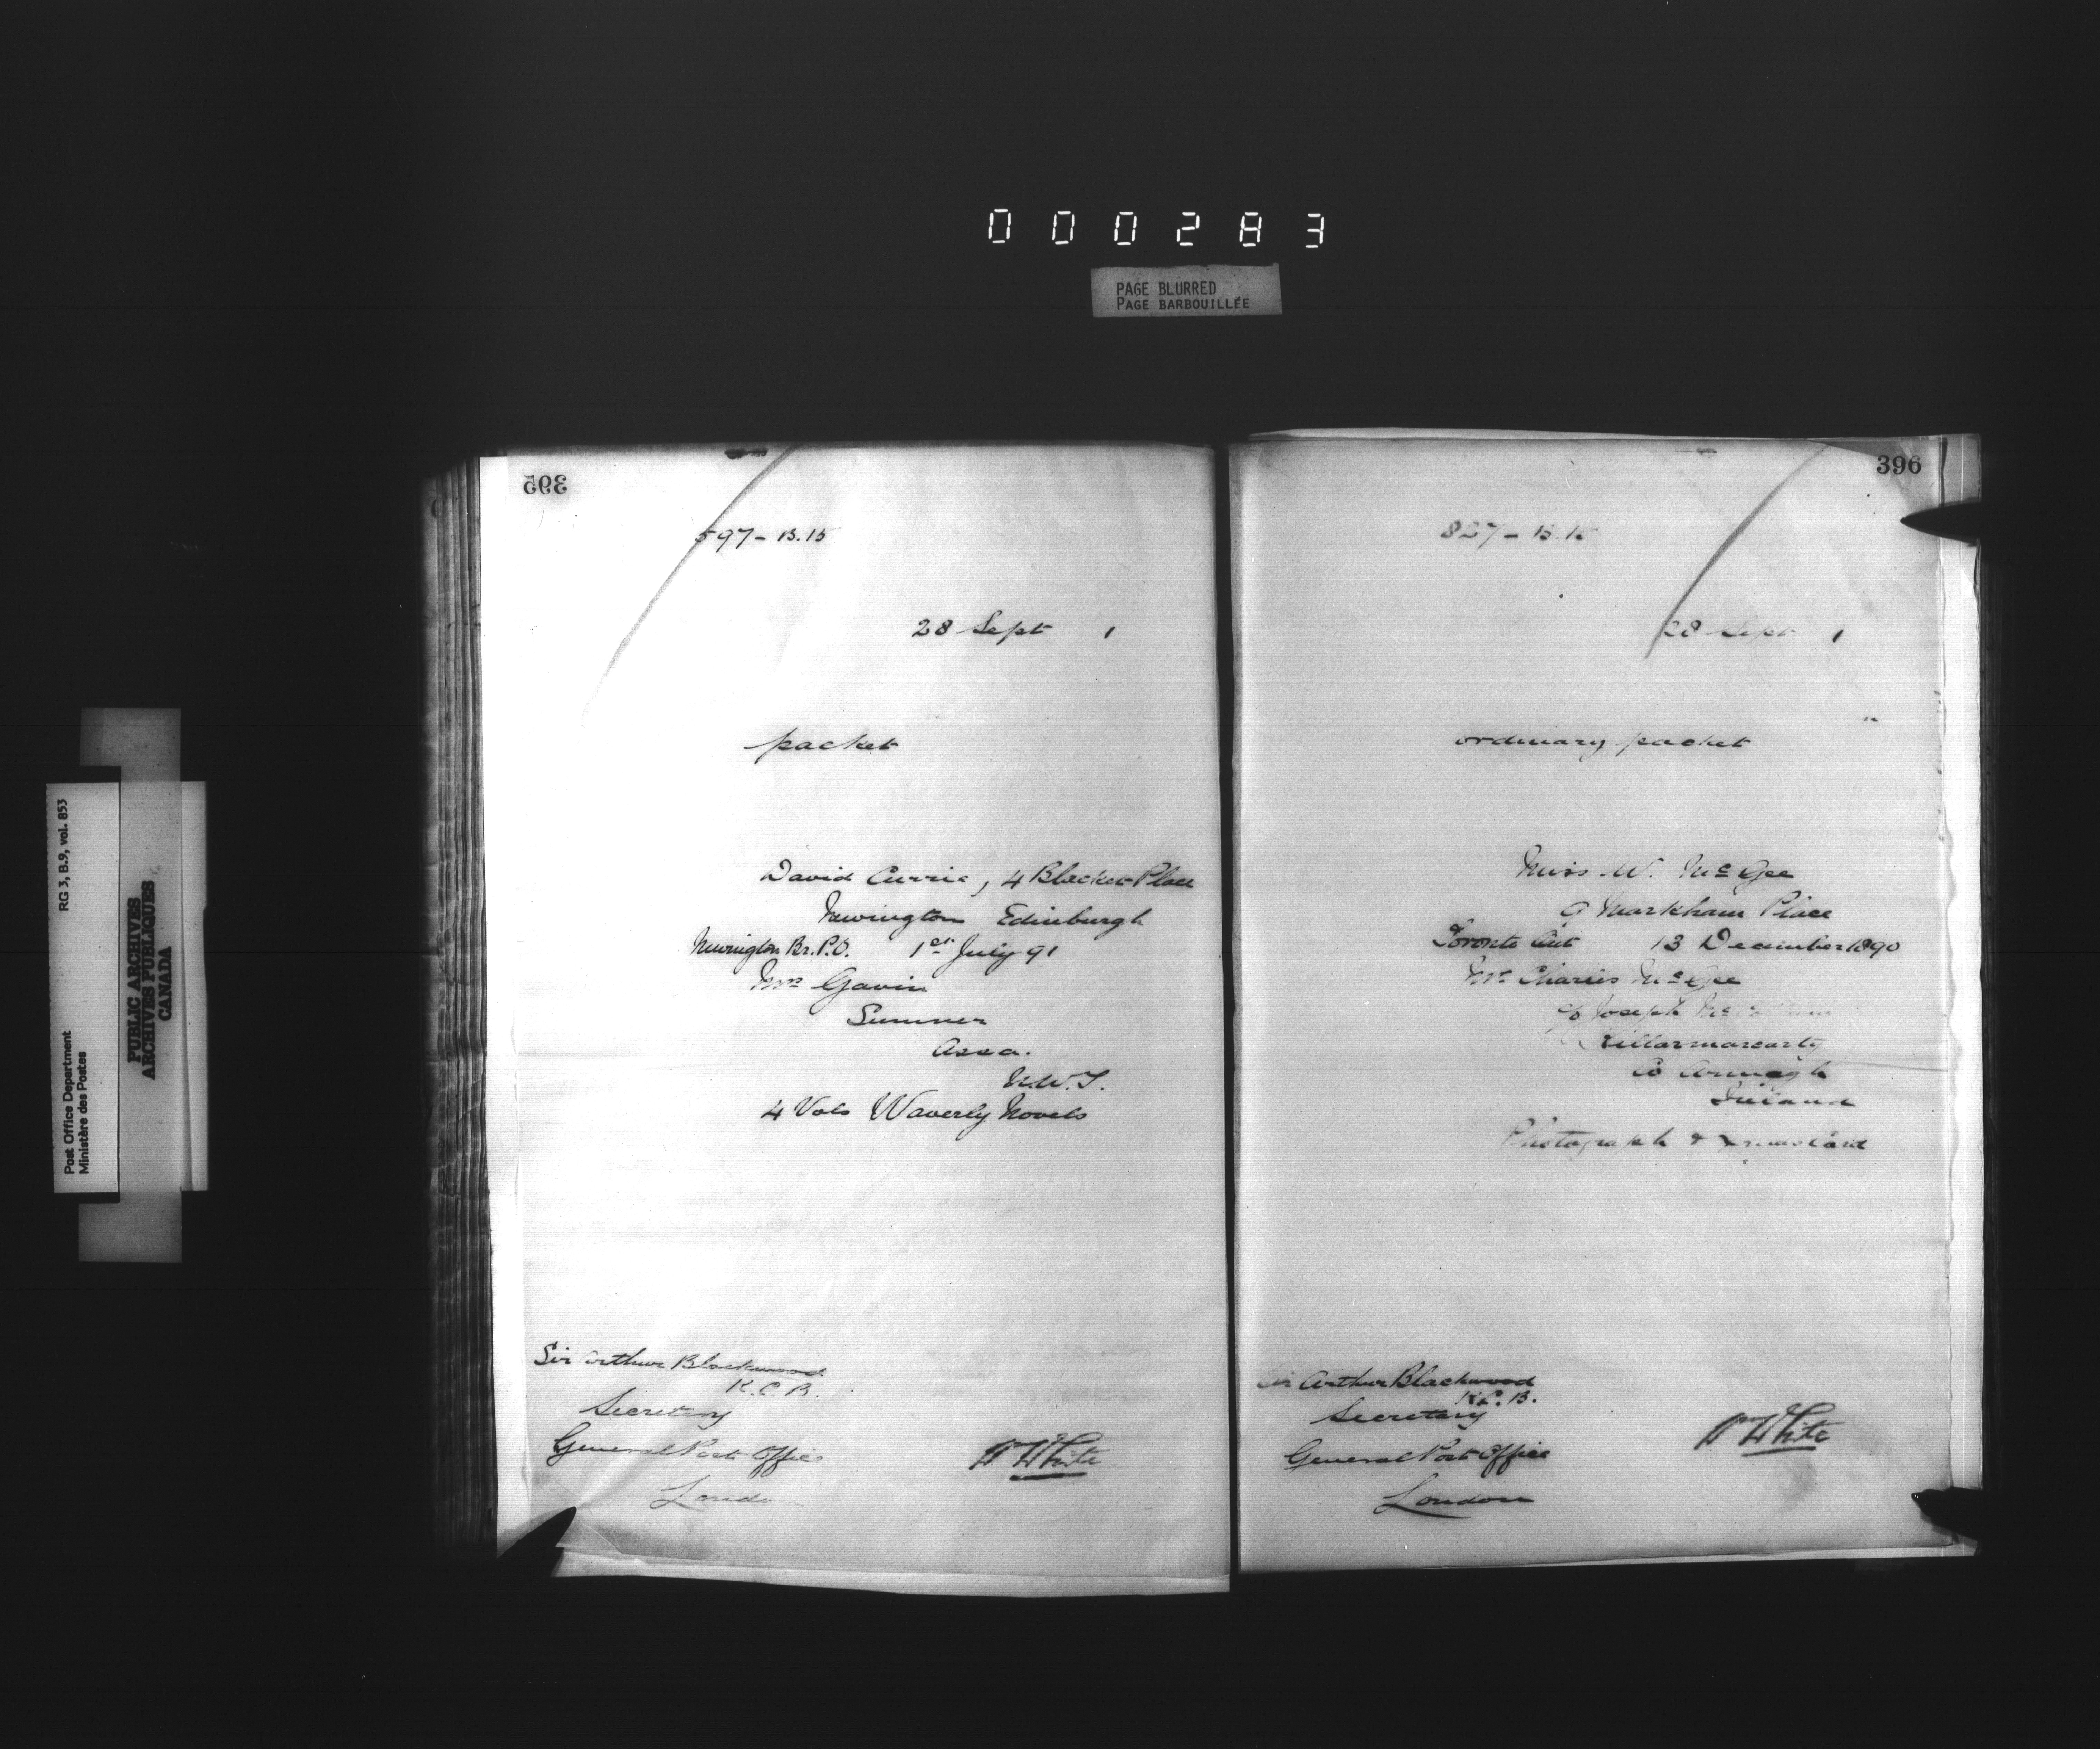 000283
PAGE BLURRED
PAGE BARBOUILLÉE
Post Office Department
Ministère des Postes
RG 3, B.9, vol. 853
PUBLIC ARCHIVES
ARCHIVES PUBLIQUES
CANADA
395
597 - B.15
28 Sept 1
packet
David Currie, 4 Blacket Place
Newington Edinburgh
Newington Br. P.O. 1st July 91
Mrs Gavin
Sumner
Assa.
N.W.T.
4 Vols Waverly Novels
Sir Arthur Blackwood
K.C.B.
Secretary
General Post Office
London
W White
396
827 - B.15
28 Sept 1
ordinary packet
Miss W. McGee
9 Markham Place
Toronto Ont 13 December 1890
Mr Charles McGee
c/o Joseph
Co Armagh
Ireland
Photograph & Xmas Card
Sir Arthur Blackwood
K.C.B.
Secretary
General Post Office
London
W White